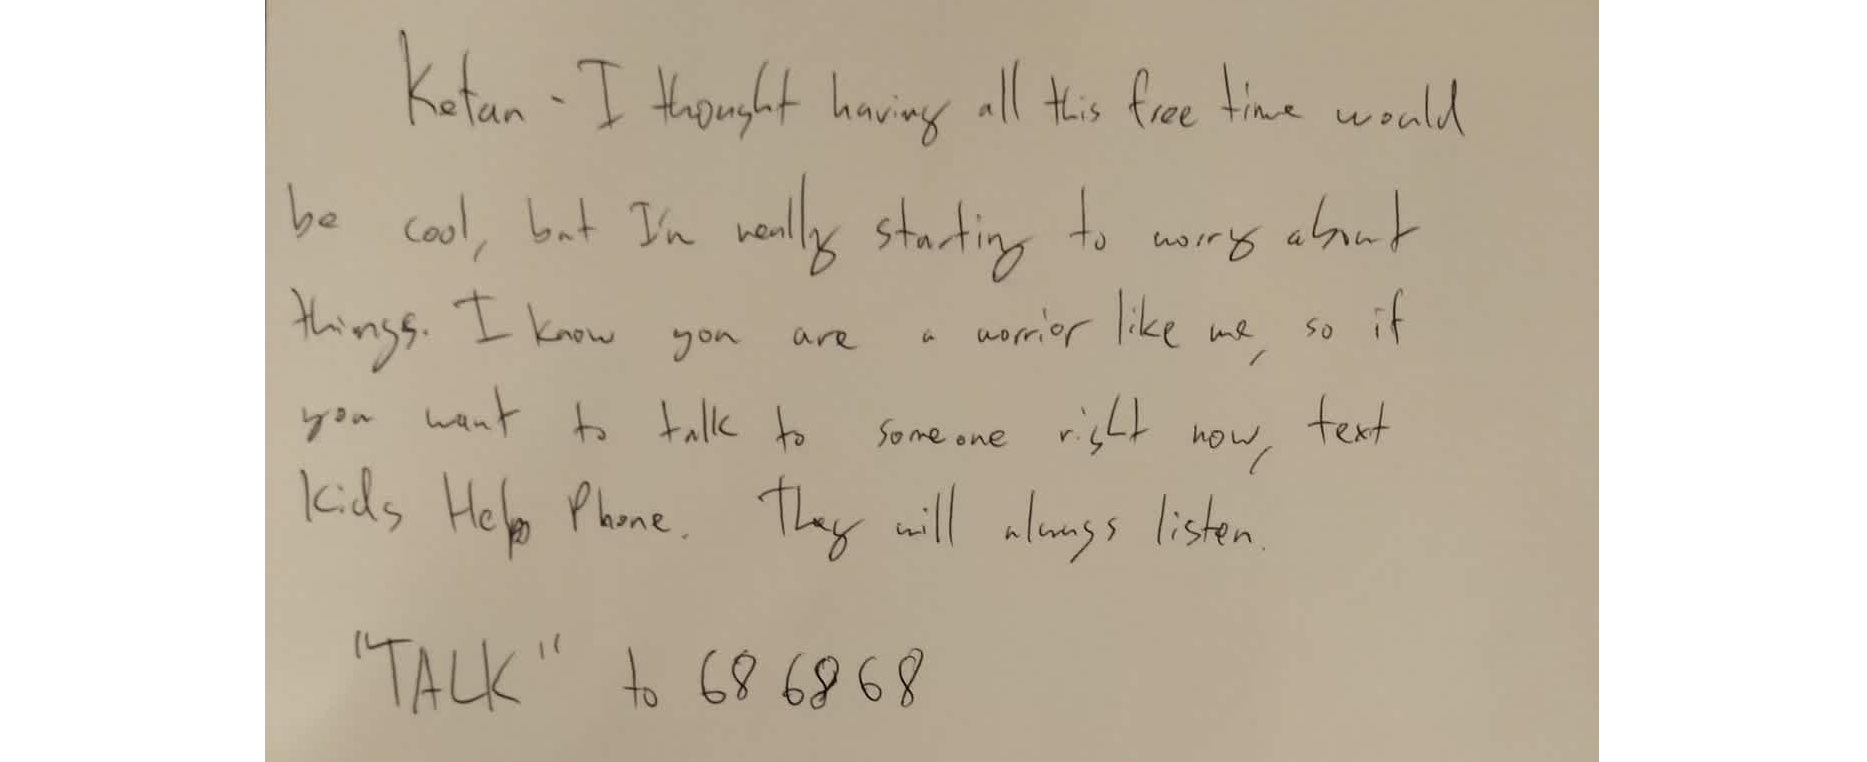 Ketan - I thought having all this free time would
be cool, but I'm really starting to worry about
things. I know you are a worrior like me, so if
you want to talk to someone right now, text
Kids Help Phone. They will always listen.
"TALK" to 686868